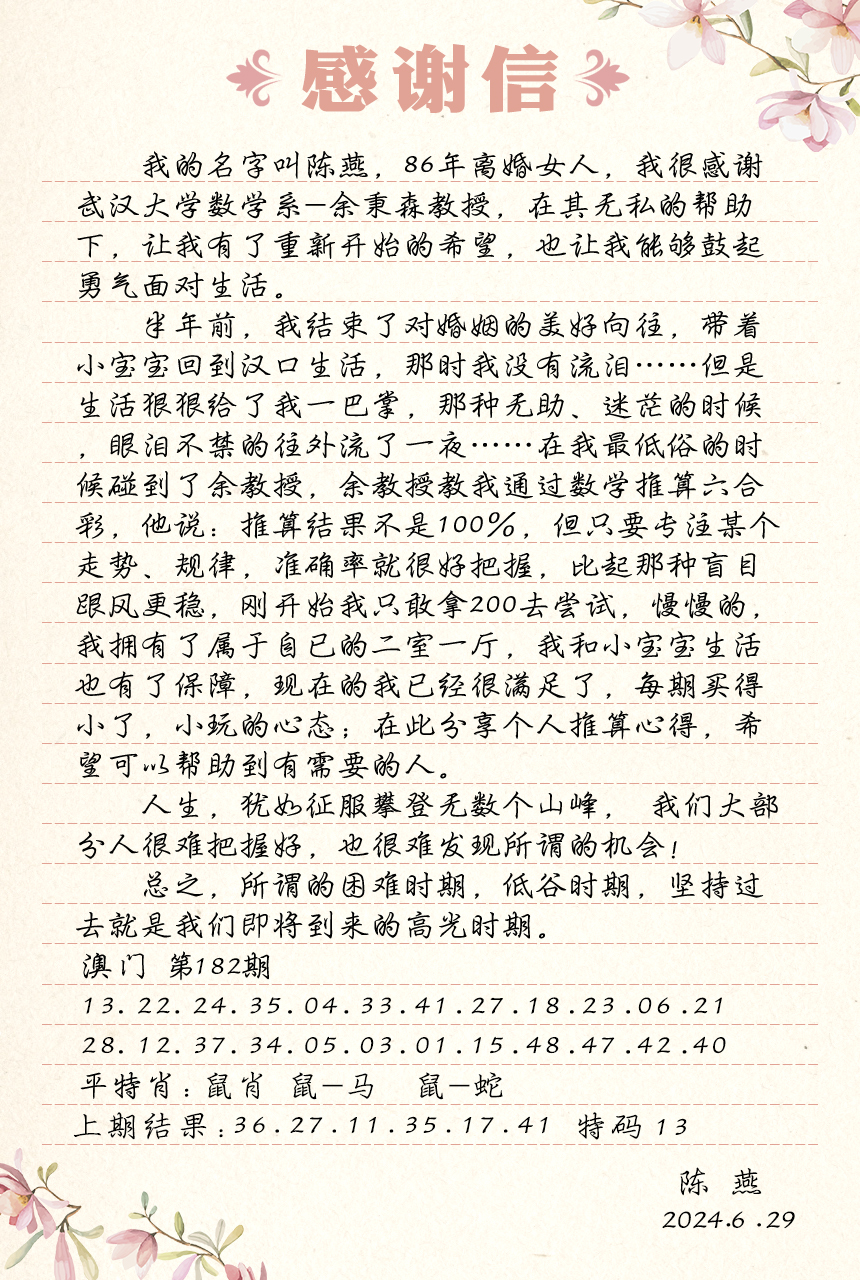 感谢信
我的名字叫陈燕，86年离婚女人，我很感谢
武汉大学数学系—余秉森教授，在其无私的帮助
下，让我有了重新开始的希望，也让我能够鼓起
勇气面对生活。
半年前，我结束了对婚姻的美好向往，带着
小宝宝回到汉口生活，那时我没有流泪……但是
生活狠狠给了我一巴掌，那种无助、迷茫的时候
，眼泪不禁的往外流了一夜……在我最低俗的时
候碰到了余教授，余教授教我通过数学推算六合
彩，他说：推算结果不是100%，但只要专注某个
走势、规律，准确率就很好把握，比起那种盲目
跟风更稳，刚开始我只敢拿200去尝试，慢慢的，
我拥有了属于自已的二室一厅，我和小宝宝生活
也有了保障，现在的我已经很满足了，每期买得
小了，小玩的心态；在此分享个人推算心得，希
望可以帮助到有需要的人。
人生，犹如征服攀登无数个山峰， 我们大部
分人很难把握好，也很难发现所谓的机会！
总之，所谓的困难时期，低谷时期，坚持过
去就是我们即将到来的高光时期。
澳门 第182期
13.22.24.35.04.33.41.27.18.23.06.21
28.12.37.34.05.03.01.15.48.47.42.40
平特肖：鼠肖 鼠—马 鼠—蛇
上期结果：36.27.11.35.17.41 特码 13
陈 燕
2024.6.29